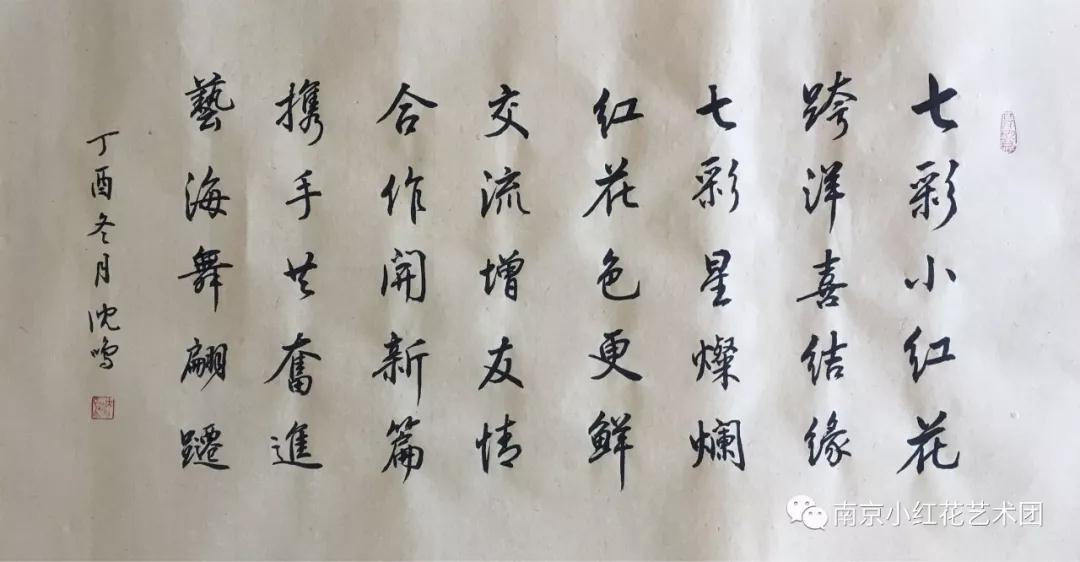 七彩小红花
跨洋喜结缘
七彩星燦爛
红花色更鲜
交流增友情
合作開新篇
携手共奮進
藝海舞翩躚
丁酉冬月沈鸣
南京小红花艺术团